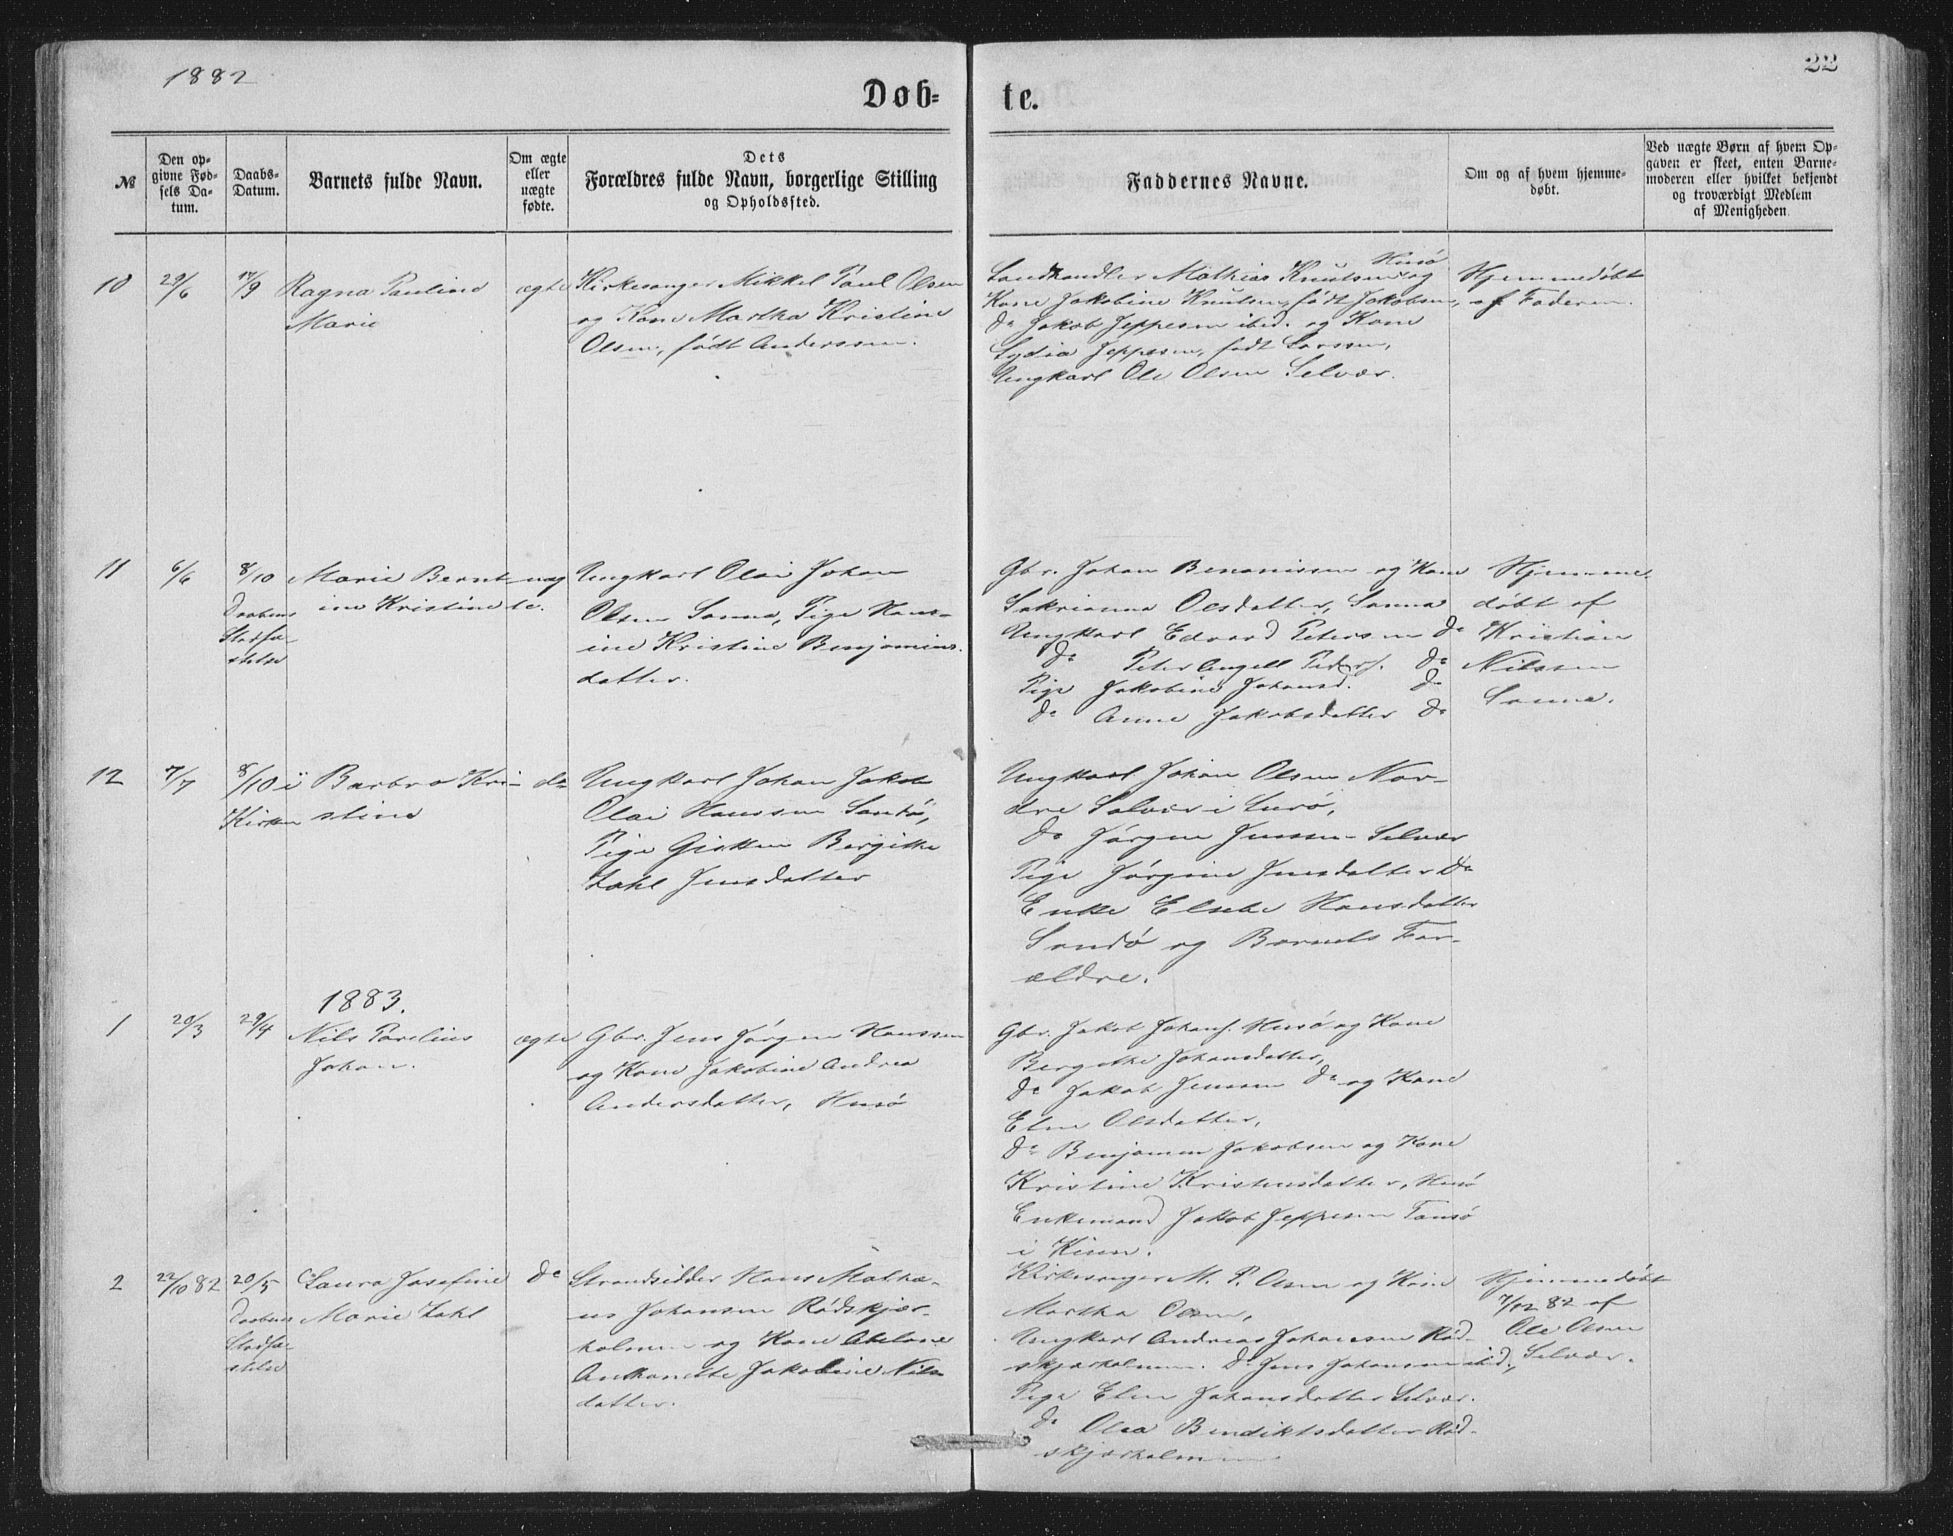 1882
22
Døb-
te.
№
Den op-
givne Fød-
sels Da-
tum.
Daabs-
Datum.
Barnets fulde Navn.
Om ægte
eller
uægte
fødte.
Dets
Forældres fulde Navn, borgerlige Stilling
og Opholdssted.
Faddernes Navne.
Om og af hvem hjemme-
døbt.
Ved uægte Børn af hvem Op-
gaven er skeet, enten Barne-
moderen eller hvilket bekjendt
og troværdigt Medlem
af Menigheden.
10
29/6
17/9
Ragna Pauline
Marie
ægte
Kirkesanger Mikkel Paul Olsen
og Kone Martha Kristine
Olsen, født Anderssen.
Husø
Landhandler Mathias Knutsen og
Kone Jakobine Knutsen, født Jakobsen,
Do Jakob Jeppesen ibid. og Kone
Lydia Jeppesen, født Larssen,
Ungkarl Ole Olsen Selvær.
Hjemmedøbt
af Faderen.
11
6/6
8/10
Daabens
Stadfæ-
stelse
Marie Bernt-
ine Kristine
uæg
te.
Ungkarl Olai Johan
Olsen Sanna, Pige Hans-
ine Kristine Benjamins-
datter.
Gbr. Johan Benonissen og Kone
Sakrianna Olsdatter, Sanna
Ungkarl Edvard Petersen Do
Do Peter Angell Peders. Do
Pige Jakobine Johansd. Do
Do Anne Jakobsdatter Do
Hjemme-
døbt af
Kristian
Nilssen
Sanna.
12
7/7
8/10 i
Kirken
Barbro Kri-
stine
do
Ungkarl Johan Jakob
Olai Hanssen Sandø,
Pige Gisken Bergitte
Zahl Jensdatter
Ungkarl Johan Olsen Nor-
dre Solvær i Lurø,
Do Jørgen Jenssen Selvær
Pige Jørgine Jensdatter Do
Enke Elsebe Hansdatter
Sandø og Barnets For-
ældre.
1883.
1
20/3
29/4
Nils Parelius
Johan.
ægte
Gbr. Jens Jørgen Hanssen
og Kone Jakobine Andrea
Andersdatter, Husø
Gbr. Jakob Johans. Husø og Kone
Bergitte Johansdatter,
Do Jakob Jenssen Do og Kone
Elen Olsdatter,
Do Benjamin Jakobsen og Kone
Kristine Kristensdatter, Husø
Enkemand Jakob Jeppesen Tansø
i Kinn.
2
22/10 82
20/5
Daabens
Stadfæ-
stelse
Laura Josefine
Marie Zahl
Do
Strandsidder Hans Mathæ-
us Johansen Rødskjær-
holmen og Kone Abelone
Anthonette Jakobine Nils-
datter.
Kirkesanger M. P. Olsen og Kone
Martha Olsen,
Ungkarl Andreas Johansen Rød-
skjærholmen. Do Jens Johansen ibid.,
Pige Elen Johansdatter Selvær.
Do Olea Bendiktsdatter Rød-
skjærholmen.
Hjemmedøbt
7/12 82 af
Ole Olsen
Selvær.